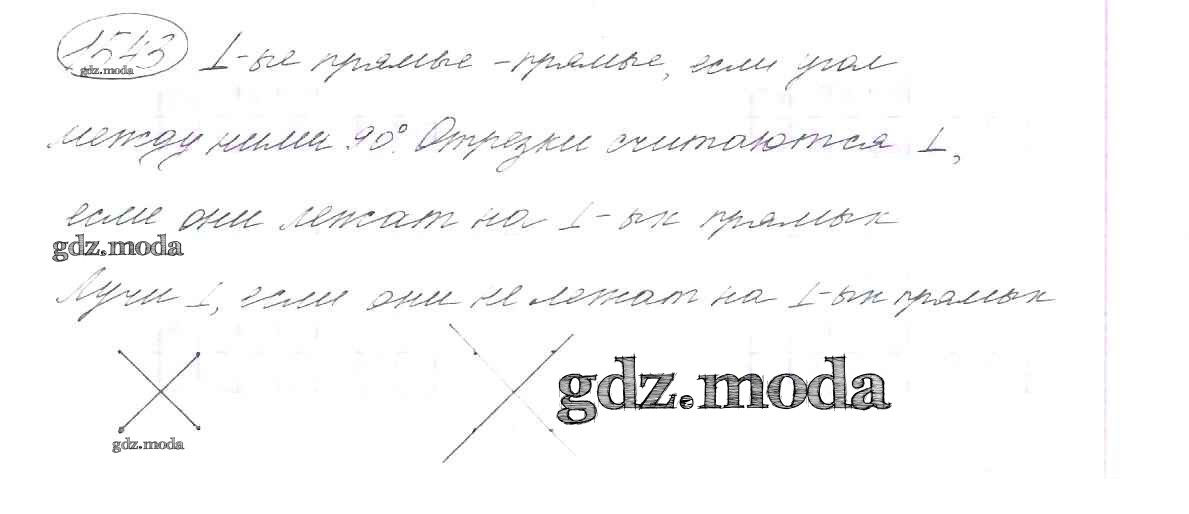 1573 ⊥-ые прямые – прямые, если угол
gdz.moda
между ними 90°. Отрезки считаются ⊥,
если они лежат на ⊥-ых прямых
gdz.moda
Лучи ⊥, если они не лежат на ⊥-ых прямых
gdz.moda
gdz.moda